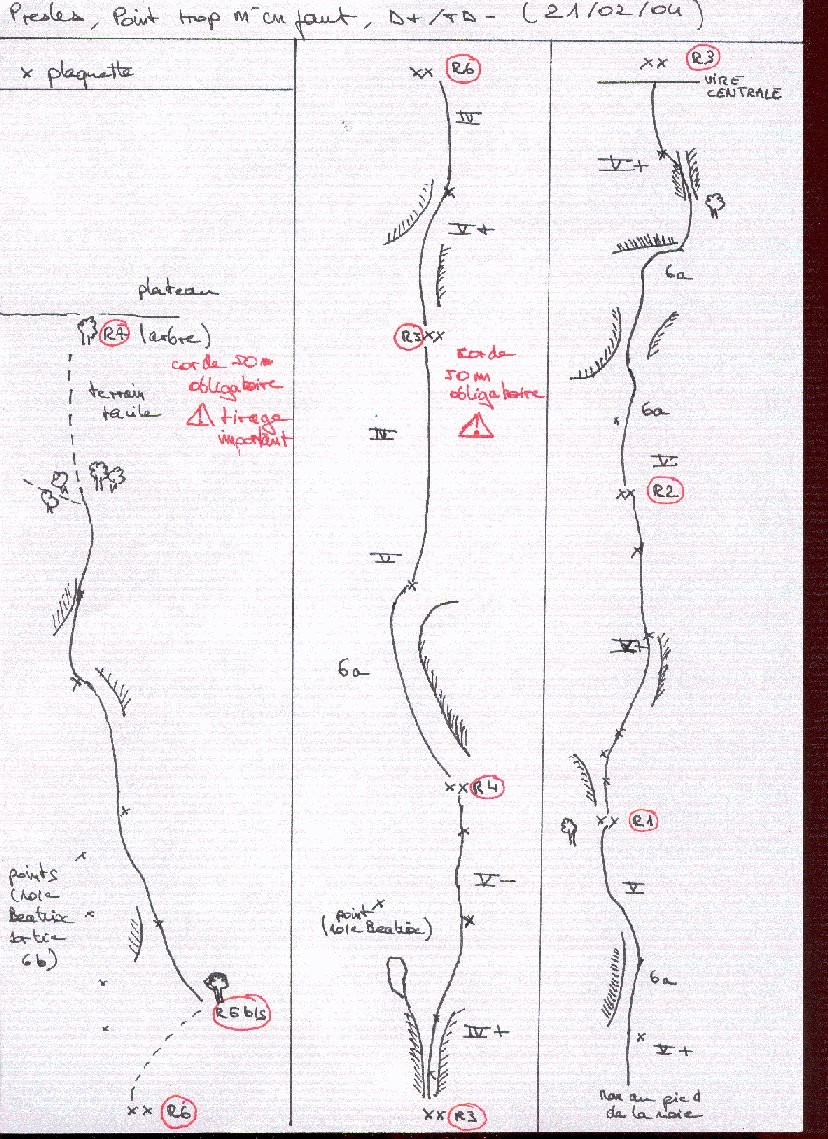 Presles, Point trop m'en faut, D+/TD- (21/02/04)
x plaquette
plateau
R7 (arbre)
corde 50m
obligatoire
⚠ tirage
important
terrain
facile
points
(voie
Beatrix
sortie
6b)
R6 bis
xx R6
xx R6
IV
V+
R5 xx
corde
50 m
obligatoire
⚠
IV
V
6a
xx R4
V-
point x
(voie Beatrix)
IV+
xx R3
xx R3
VIRE
CENTRALE
V+
6a
6a
V
xx R2
V+
xx R1
V
6a
V+
au pied
de la voie